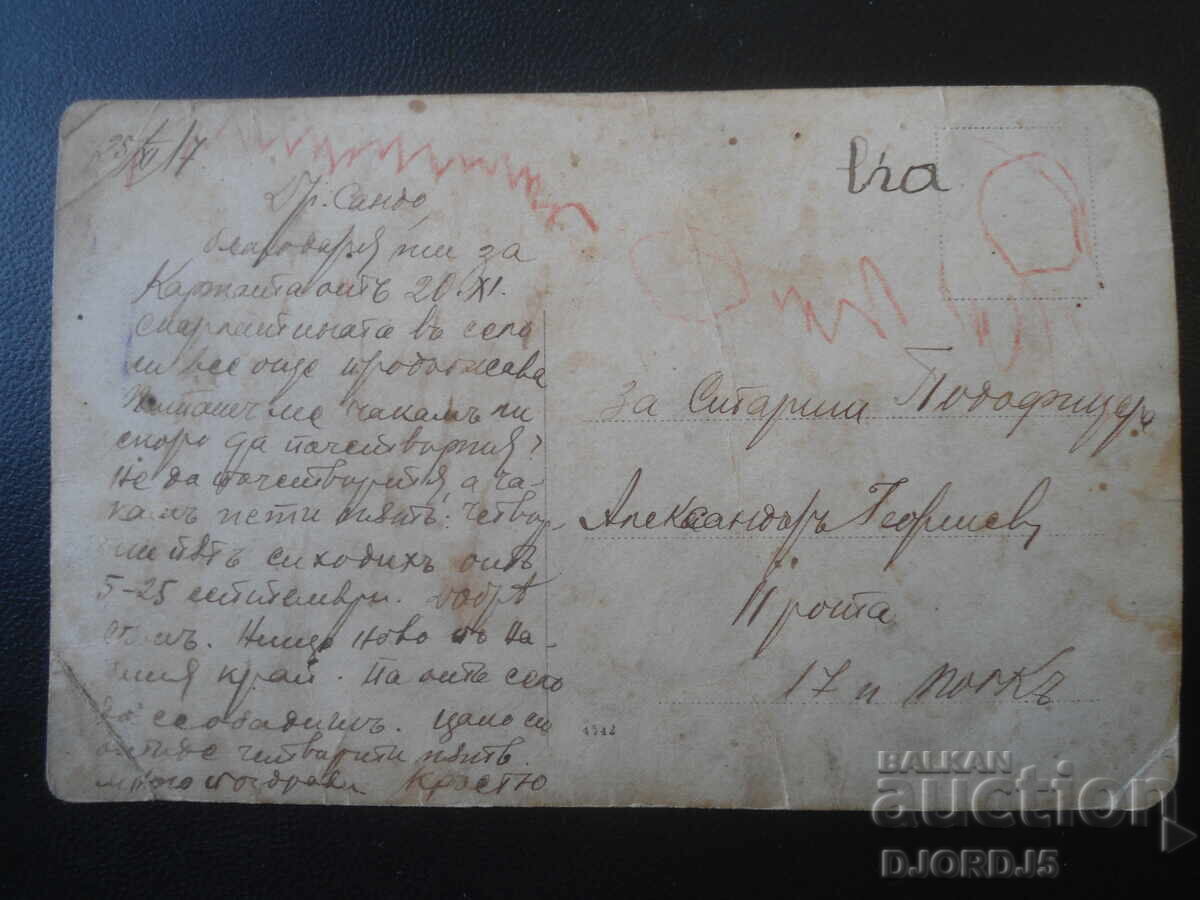 25/XI 17
Др. Сандо,
благодаря ти за
картата отъ 20.XI.
Скарлатината въ село
ли все още продължава
чакамъ ли
скоро да почетворя?
Не да почетворятъ, а ча-
камъ пети пѫть. Четвър-
ти пѫть си ходихъ отъ
5-25 септември. Добрѣ
съмъ. Нищо ново въ на-
шия край. На отъ село
Цано си
отиде четвърти пѫть.
много поздрави Кръстю
вга
За Старши Подофицеръ
Александъръ Георгиевъ
11 рота
17 п. полкъ
4542
BALKAN
auction
DJORDJ5